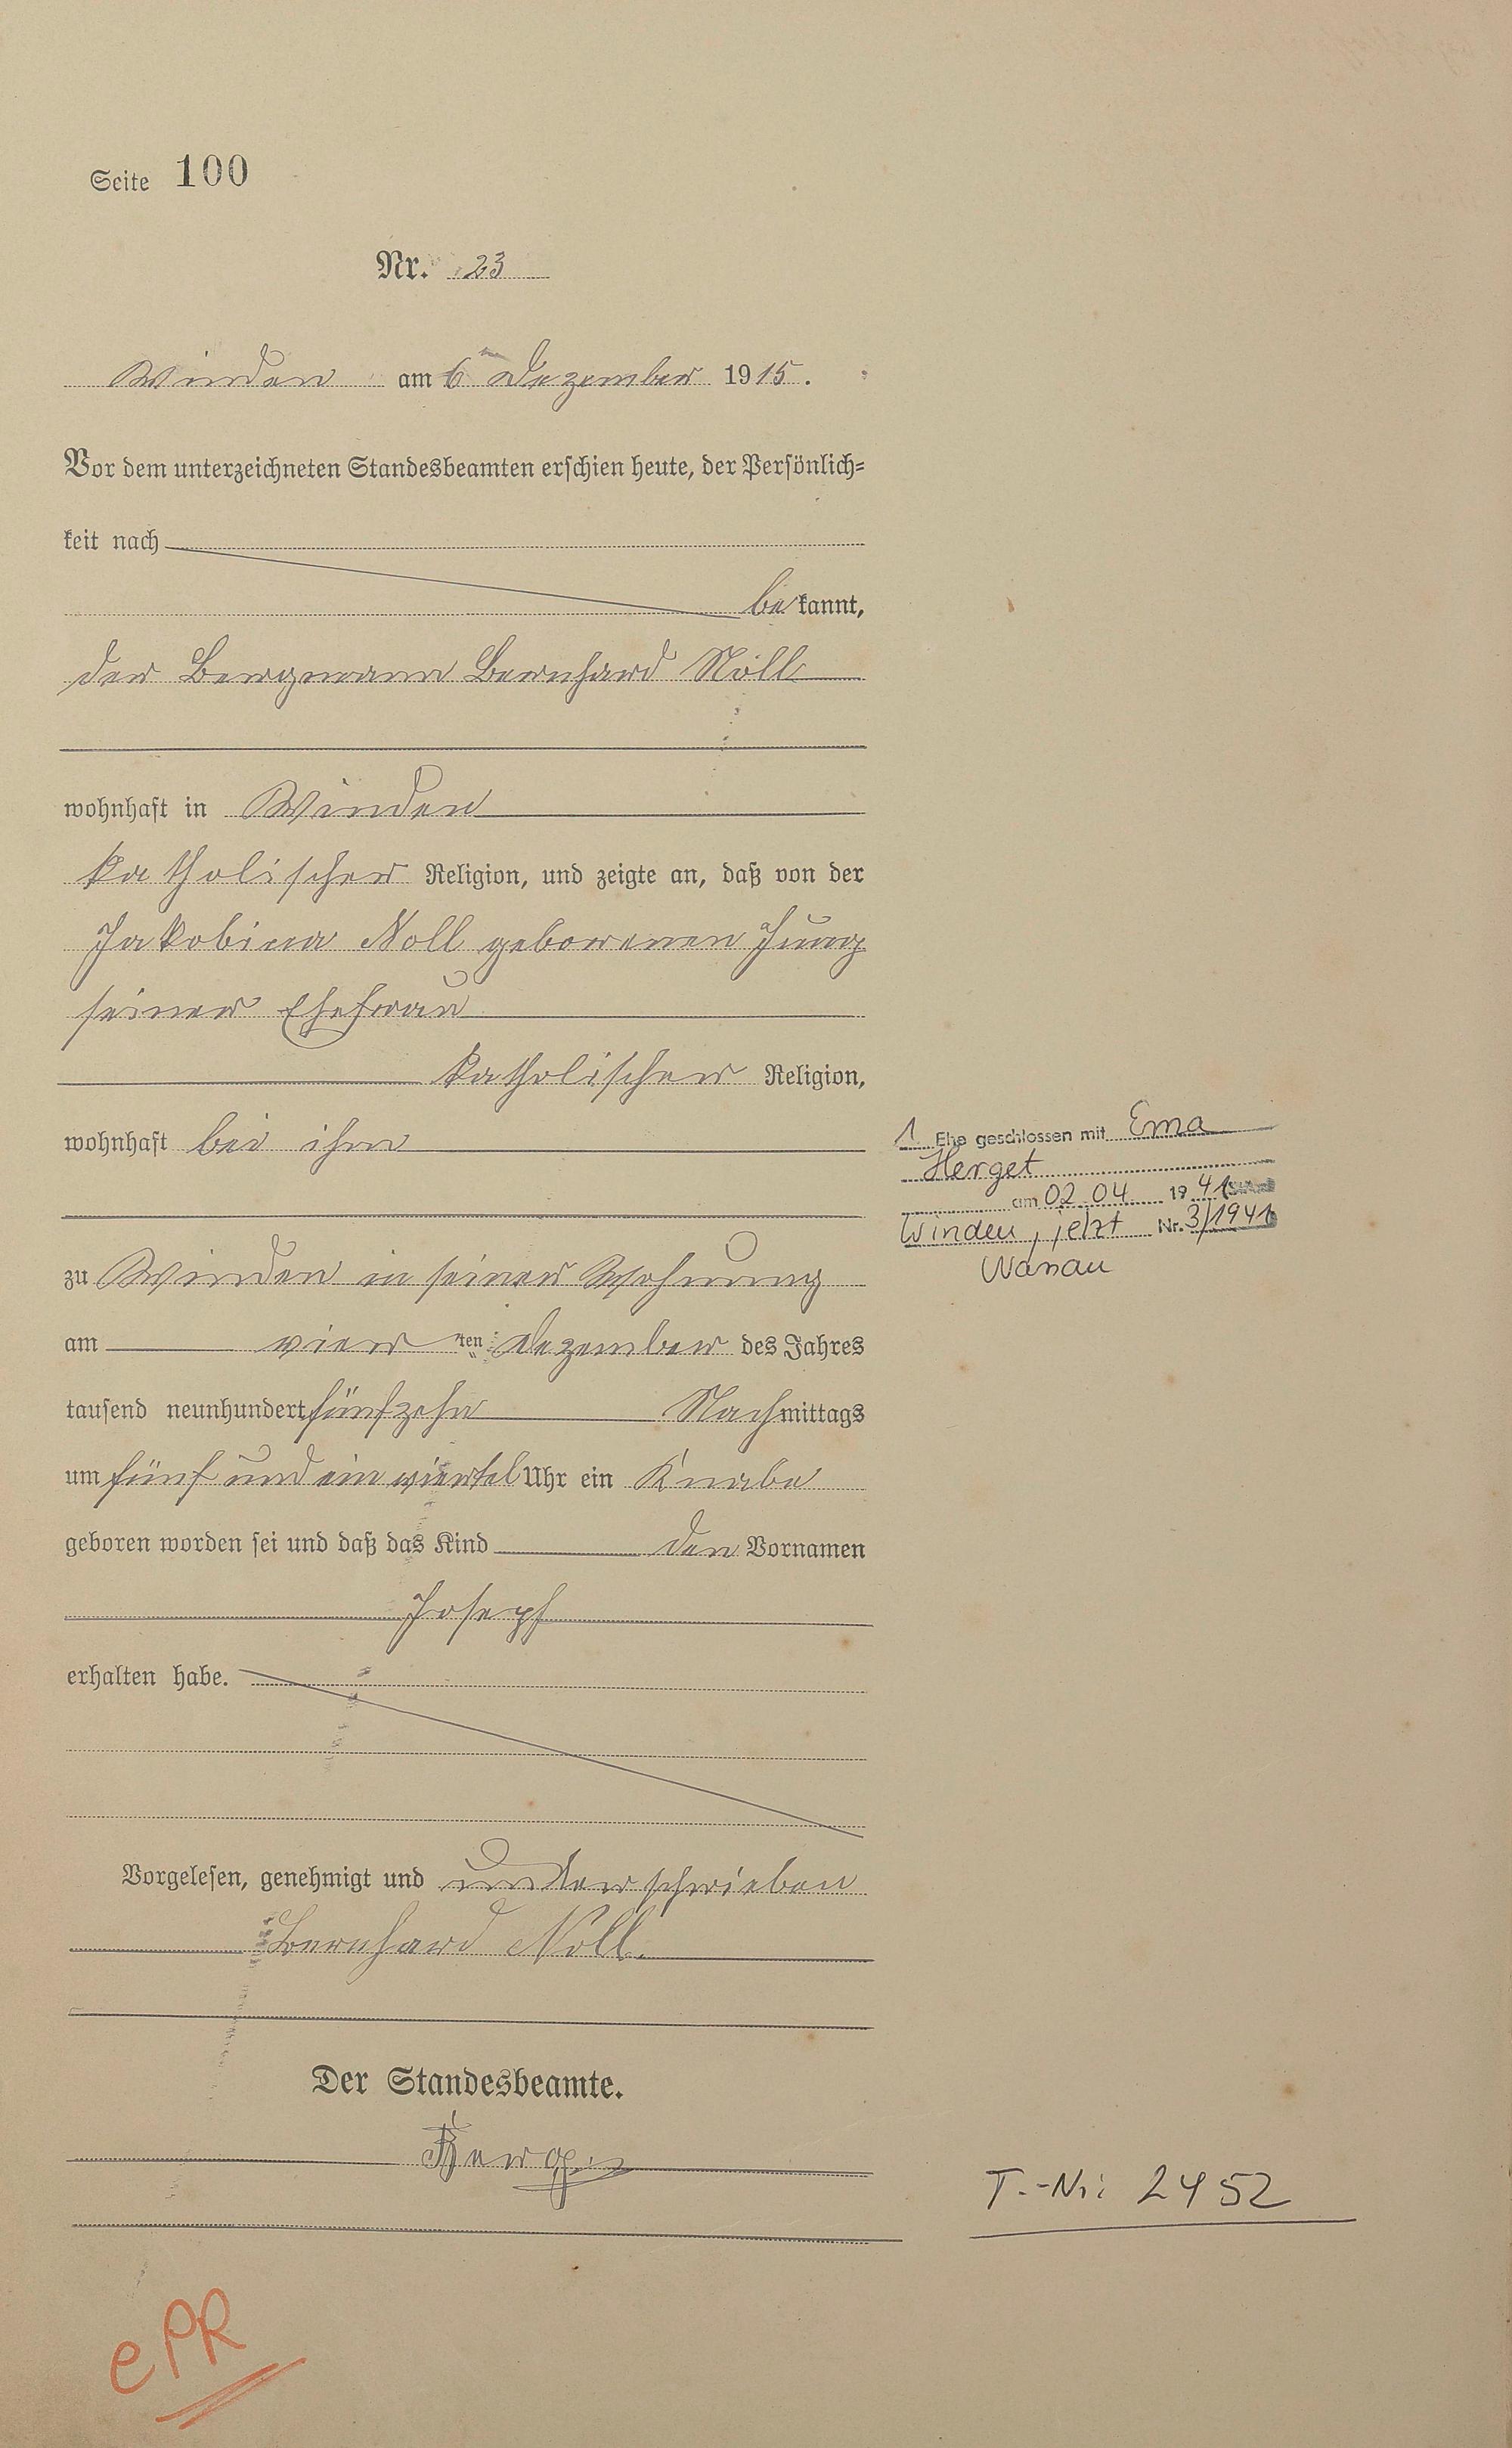 Seite 100
Nr. 23
Winden am 6ten Dezember 1915.
Vor dem unterzeichneten Standesbeamten erschien heute, der Persönlich=
keit nach
bekannt,
der Bergmann Bernhard Noll
wohnhaft in Winden
katholischer Religion, und zeigte an, daß von der
Jakobina Noll geborenen Jung
seiner Ehefrau
katholischer Religion,
wohnhaft bei ihm
zu Winden in seiner Wohnung
am vierten Dezember des Jahres
tausend neunhundert fünfzehn Nachmittags
um fünf und ein viertel Uhr ein Knabe
geboren worden sei und daß das Kind den Vornamen
Joseph
erhalten habe.
Vorgelesen, genehmigt und unterschrieben
Bernhard Noll.
Der Standesbeamte.
1. Ehe geschlossen mit Erna
Herget
am 02.04. 1941
Winden, jetzt Nr. 3/1941
Nassau
T.-Nr: 2452
ePR